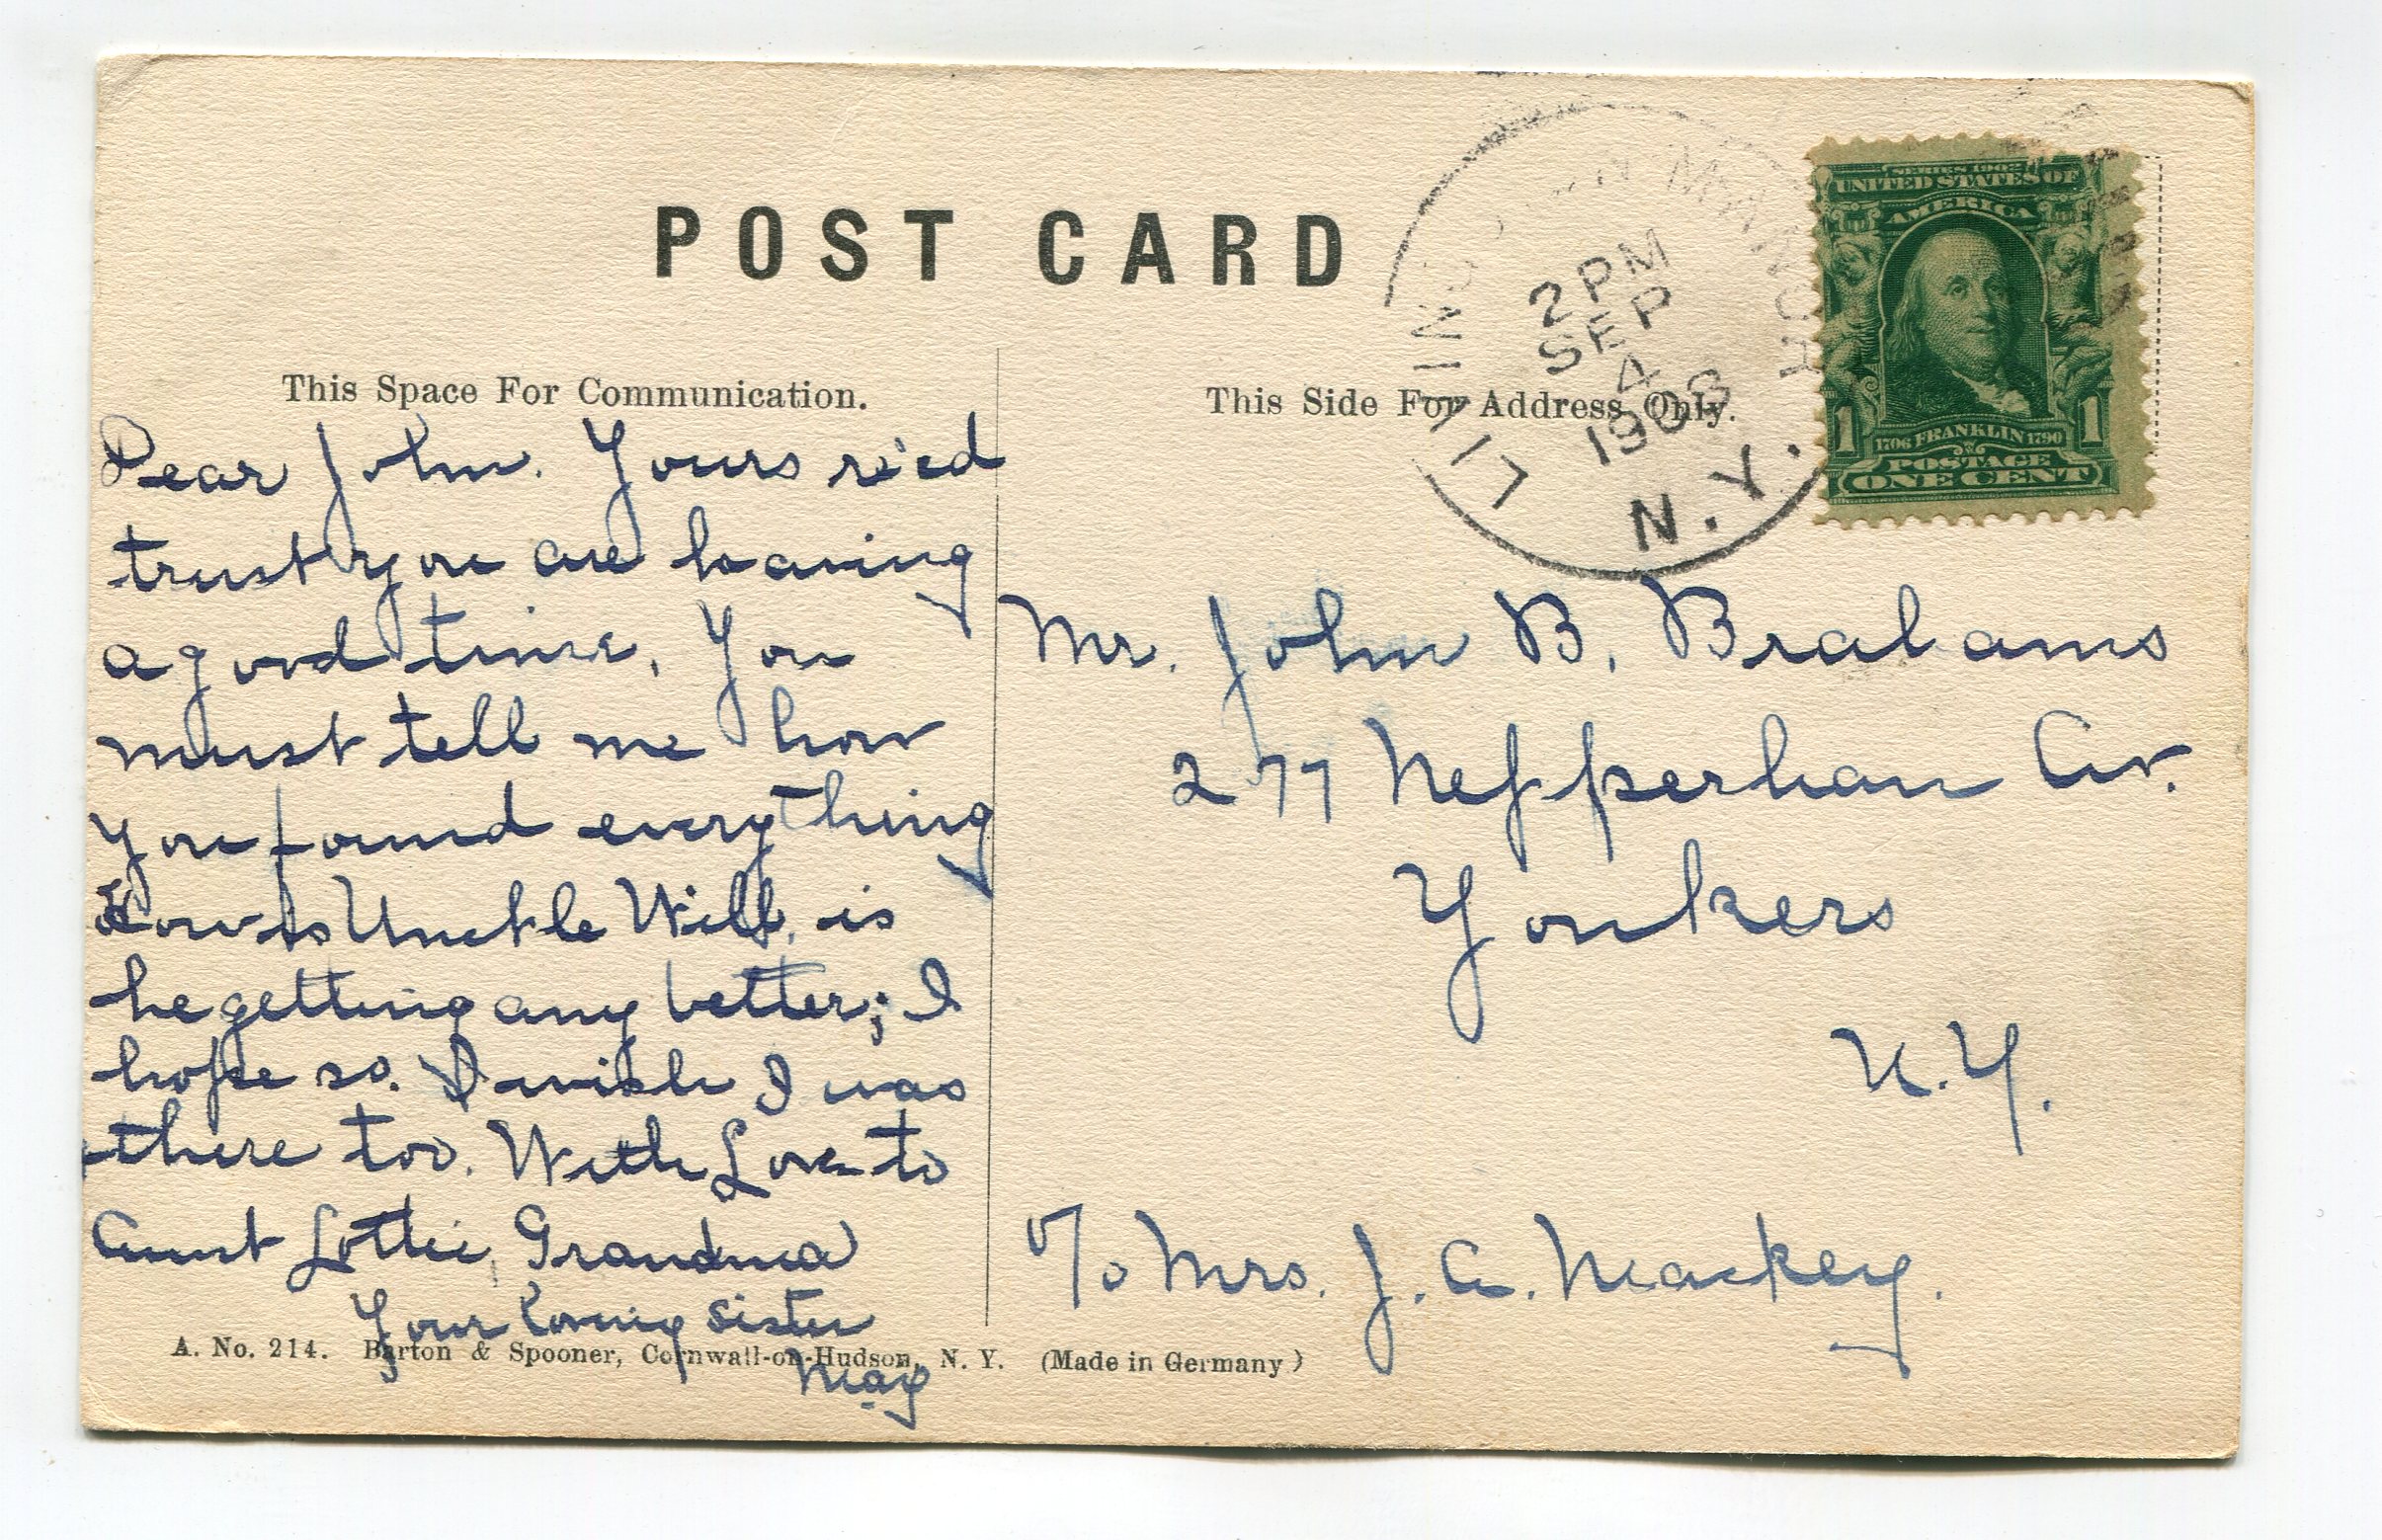 POST CARD
This Space For Communication.
Dear John. Yours rec'ed
trust you are having
a good time. You
must tell me how
you found everything
How is Unckle Will, is
he getting any better; I
hope so. I wish I was
there too. With Love to
Aunt Lottie, Grandma
Your loving sister
May
A. No. 214. Barton & Spooner, Cornwall-on-Hudson, N. Y. (Made in Germany)
This Side For Address Only.
2 PM
SEP
4
1908
N.Y.
SERIES 1902
UNITED STATES OF
AMERICA
1706 FRANKLIN 1790
1 1
POSTAGE
ONE CENT
Mr. John B. Brabams
277 Nepperhan Av.
Yonkers
N.Y.
c/o Mrs. J. A. Mackey.